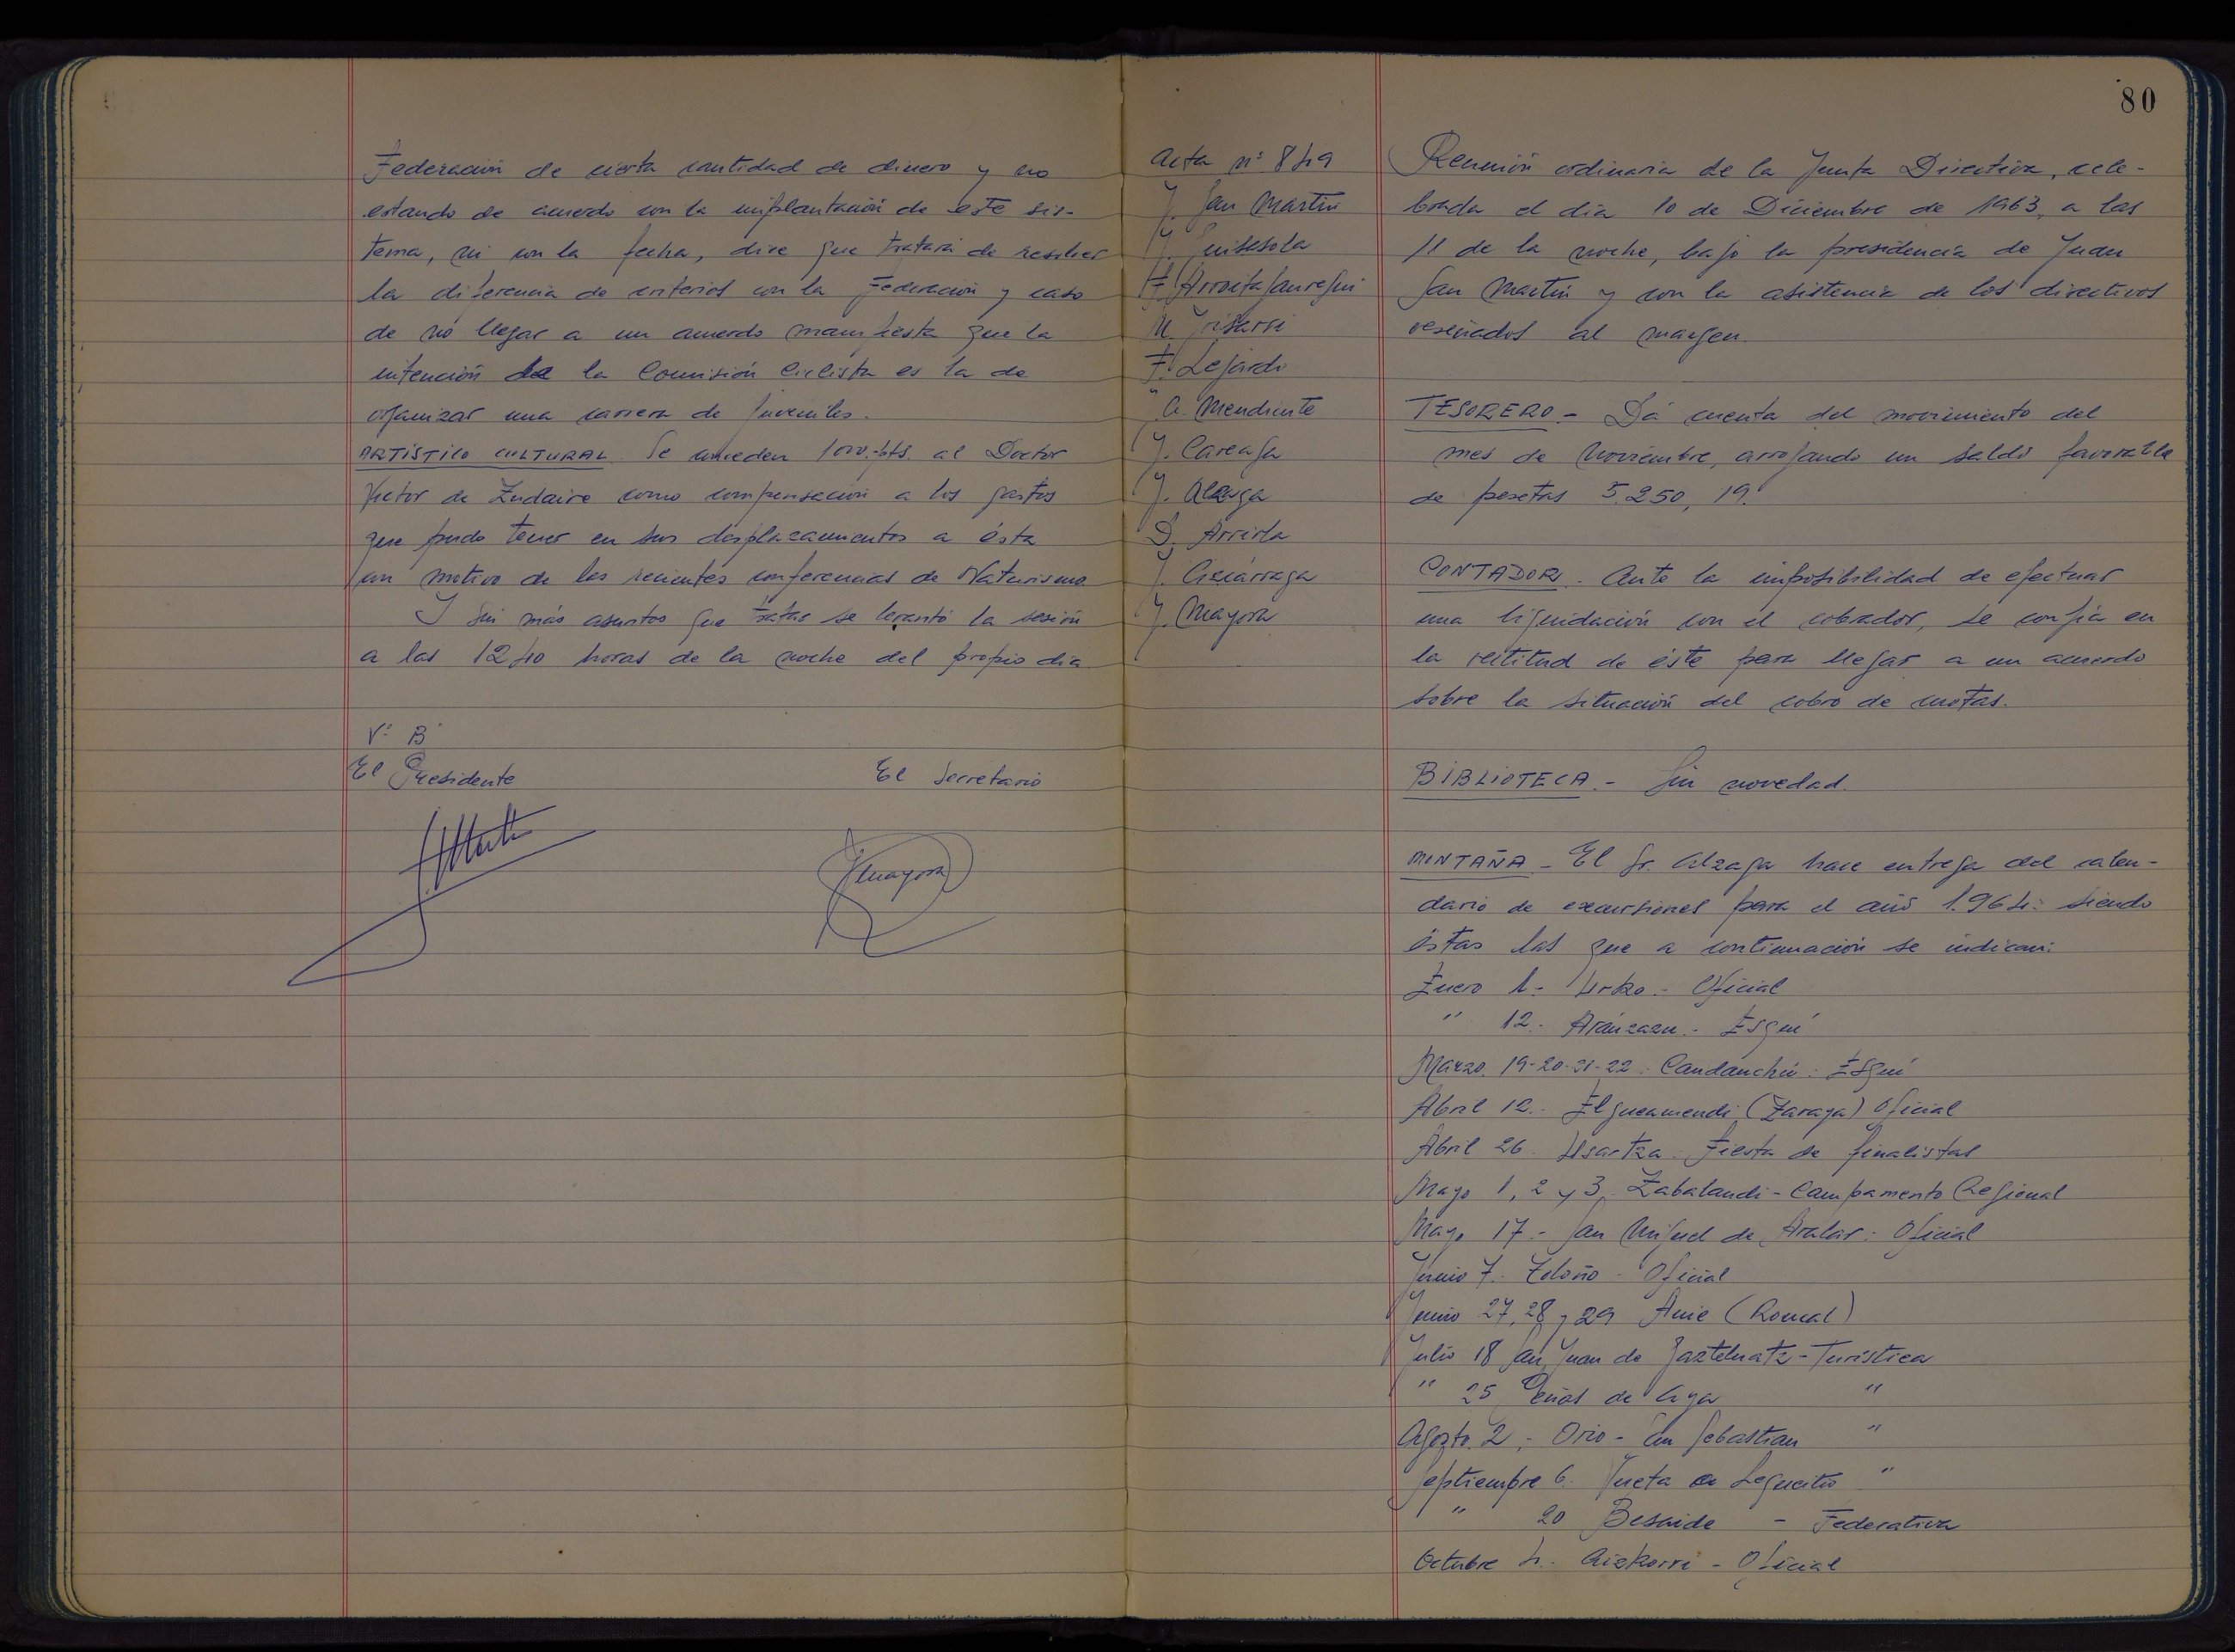 Federación de cierta cantidad de dinero y no
estando de acuerdo con la implantación de este sis-
tema, ni con la fecha, dice que tratará de resolver
la diferencia de criterios con la Federación y caso
de no llegar a un acuerdo manifiesta que la
intención de la Comisión Ciclista es la de
organizar una carrera de juveniles.
ARTÍSTICO CULTURAL. Se conceden 1000.-pts. al Doctor
Victor de Zudaire como compensación a los gastos
que pudo tener en sus desplazamientos a ésta
con motivo de las recientes conferencias de Naturismo
Y sin más asuntos que tratar se levantó la sesión
a las 12,40 horas de la noche del propio día
Vº Bº
El Presidente
El Secretario
J. Mayora
80
Acta nº 849
J. San Martín
J. Guisasola
F. Arroitajauregui
M. Irisarri
F. Lejardo
A. Mendiente
J. Careaga
J. Alzaga
D. Arriola
J. Azcárraga
J. Mayora
Reunión ordinaria de la Junta Directiva, cele-
brada el día 10 de Diciembre de 1963, a las
11 de la noche, bajo la presidencia de Juan
San Martín y con la asistencia de los directivos
reseñados al margen.
TESORERO.- Dá cuenta del movimiento del
mes de Noviembre, arrojando un saldo favorable
de pesetas 5.250,19.
CONTADOR.- Ante la imposibilidad de efectuar
una liquidación con el cobrador, se confía en
la rectitud de éste para llegar a un acuerdo
sobre la situación del cobro de cuotas.
BIBLIOTECA.- Sin novedad.
MONTAÑA.- El Sr. Alzaga hace entrega del calen-
dario de excursiones para el año 1.964: siendo
éstas las que a continuación se indican:
Enero 1.- Urko.- Oficial
" 12.- Aránzazu.- Esquí
Marzo. 19-20-21-22.- Candanchú: Esquí
Abril 12.- Elgueamendi (Zaraya) Oficial
Abril 26. Usartza. Fiesta de finalistas
Mayo 1, 2 y 3. Zabalandi - Campamento Regional
Mayo 17.- San Miguel de Aralar: Oficial
Junio 7. Toloño - Oficial
Junio 27, 28 y 29 Anie (Roncal)
Julio 18 San Juan de Gaztelugatz - Turística
" 25 Peñas de Aya "
Agosto. 2.- Orio - San Sebastian "
Septiembre 6. Vuelta en Lequeitio "
" 20 Besaide - Federativa
Octubre 4.- Aizkorri - Oficial